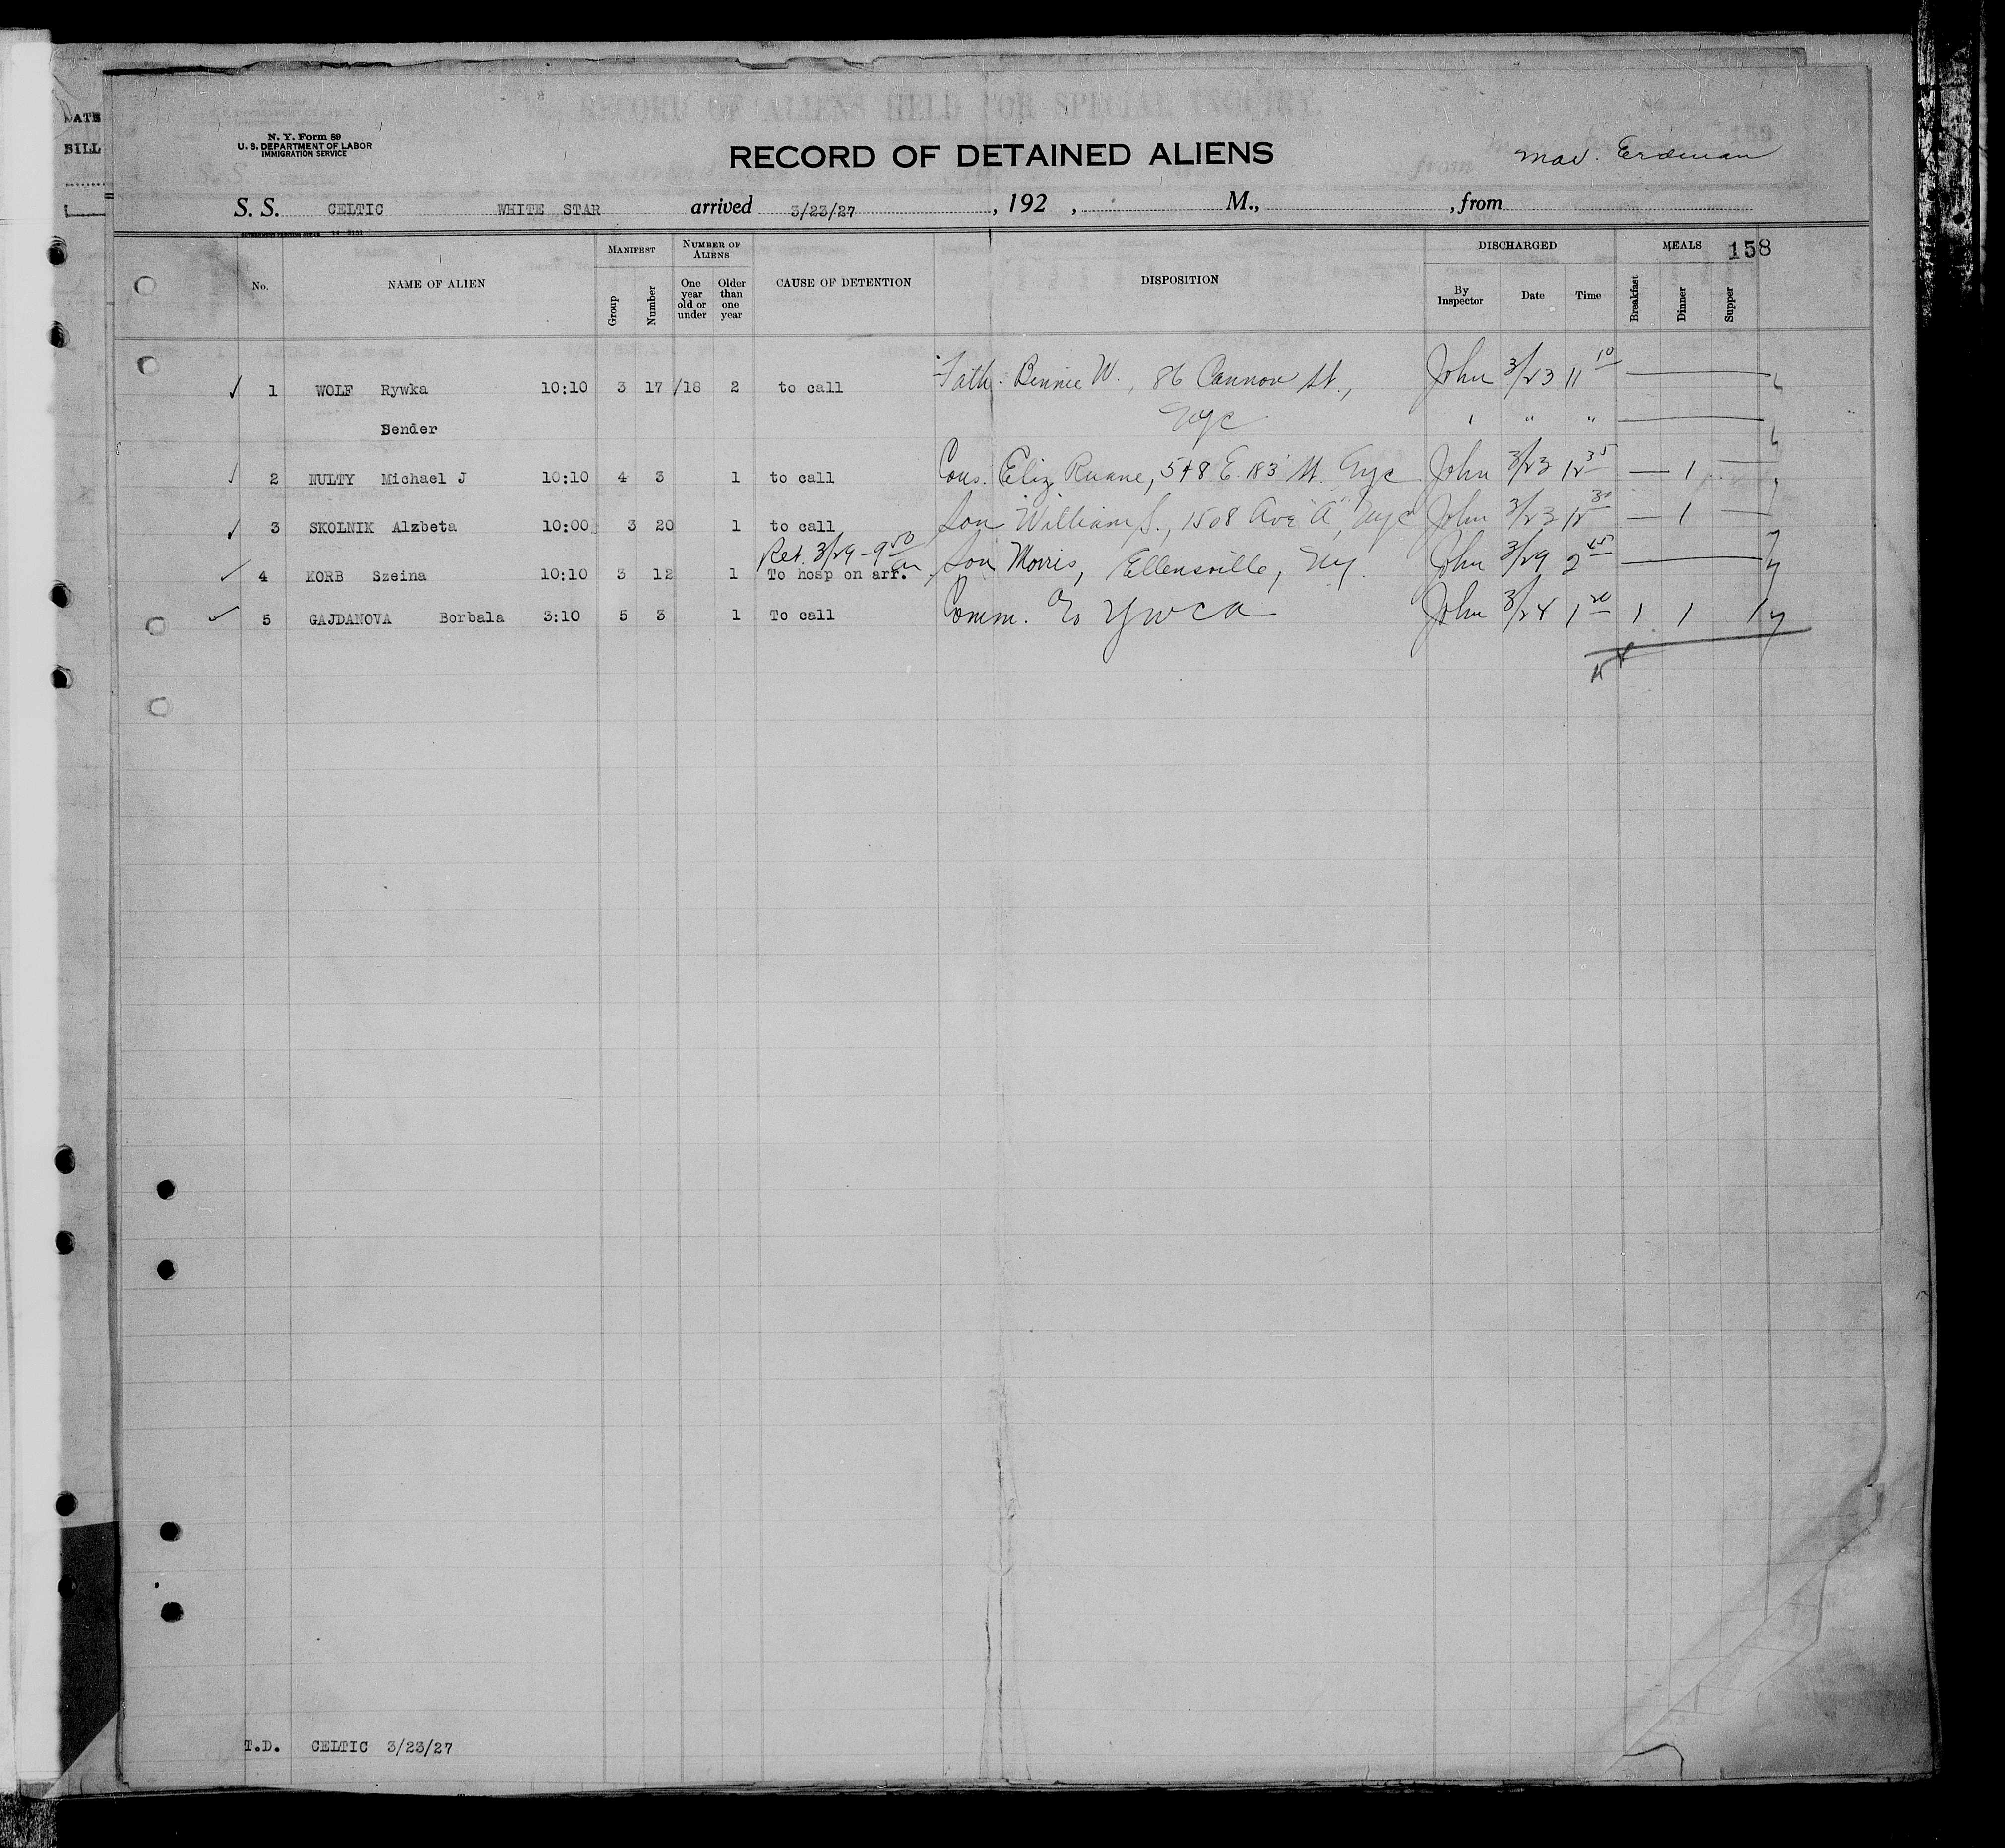 DATE
BILL
N. Y. Form 89
U. S. DEPARTMENT OF LABOR
IMMIGRATION SERVICE
RECORD OF ALIENS HELD FOR SPECIAL INQUIRY.
RECORD OF DETAINED ALIENS
Erdman
S. S. CELTIC WHITE STAR arrived 3/23/27, 192 , M., , from
No. NAME OF ALIEN MANIFEST Group Number NUMBER OF ALIENS One year old or under Older than one year CAUSE OF DETENTION DISPOSITION DISCHARGED By Inspector Date Time MEALS Breakfast Dinner Supper 158
1 WOLF Rywka 10:10 3 17 /18 2 to call Fath. Bennie W., 86 Cannon St., John 3/23 11 10
Bender Nyc " " "
2 NULTY Michael J 10:10 4 3 1 to call Cous. Eliz Ruane, 548 E. 183 St. Nyc John 3/23 12 35 — 1 —
3 SKOLNIK Alzbeta 10:00 3 20 1 to call Son William S., 1508 Ave "A", Nyc John 3/23 12 30 — 1 —
Ret. 3/29 - 9 50 am
4 KORB Szeina 10:10 3 12 1 To hosp on arr. Son Morris, Ellensville, Ny. John 3/29 2 45
5 GAJDANOVA Borbala 3:10 5 3 1 To call Comm. To YWCA John 3/24 1 20 1 1 1
T.D. CELTIC 3/23/27